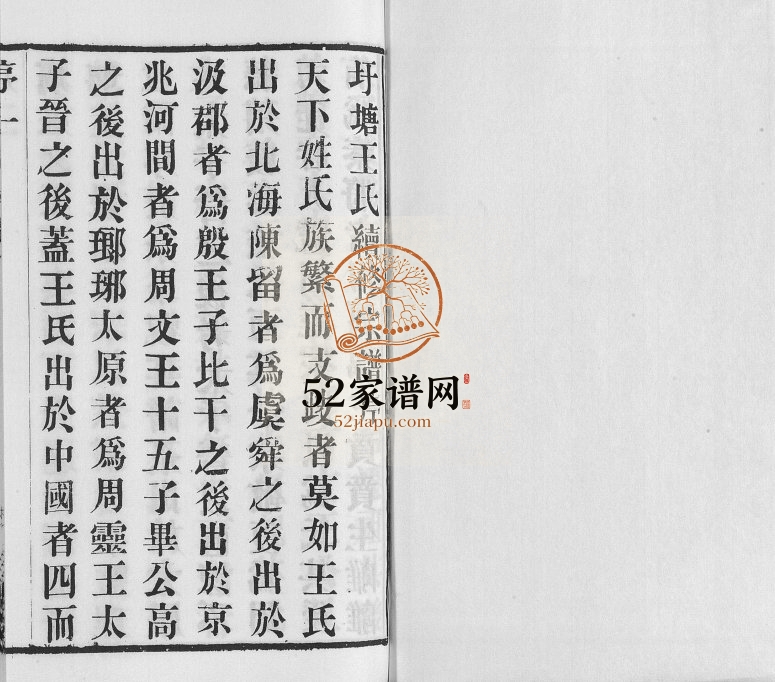 圩塘王氏續修宗譜序
天下姓氏族繁而支歧者莫如王氏
出於北海陳留者爲虞舜之後出於
汲郡者爲殷王子比干之後出於京
兆河間者爲周文王十五子畢公高
之後出於瑯琊太原者爲周靈王太
子晉之後蓋王氏出於中國者四而
序一
52家谱网
52jiapu.com